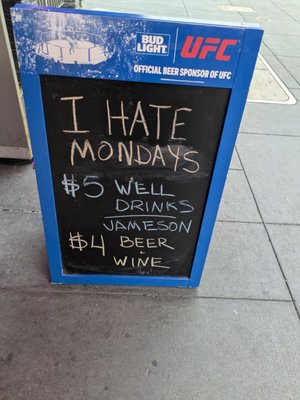 BUD
LIGHT
UFC
OFFICIAL BEER SPONSOR OF UFC
I HATE
MONDAYS
$5 WELL
DRINKS
JAMESON
$4 BEER
+
WINE